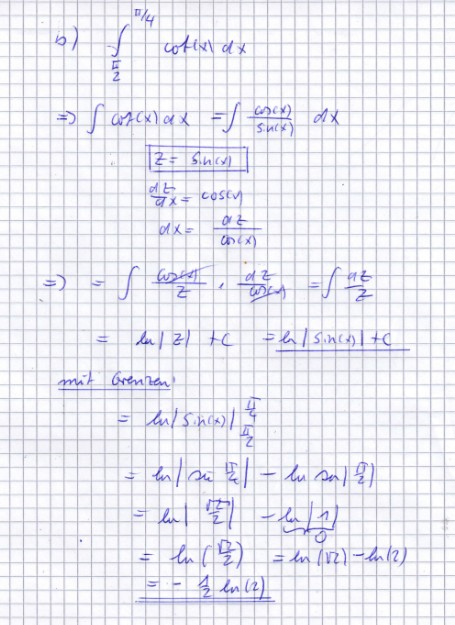 b) ∫_{π/2}^{π/4} cot(x) dx
=> ∫ cot(x) dx = ∫ cos(x)/sin(x) dx
z = sin(x)
dz/dx = cos(x)
dx = dz/cos(x)
=> = ∫ cos(x)/z · dz/cos(x) = ∫ dz/z
= ln|z| + C = ln|sin(x)| + C
mit Grenzen:
= ln|sin(x)| π/4 π/2
= ln|sin π/4| - ln sin|π/2|
= ln|√2/2| - ln|1|
0
= ln(√2/2) = ln(√2) - ln(2)
= - 1/2 ln(2)